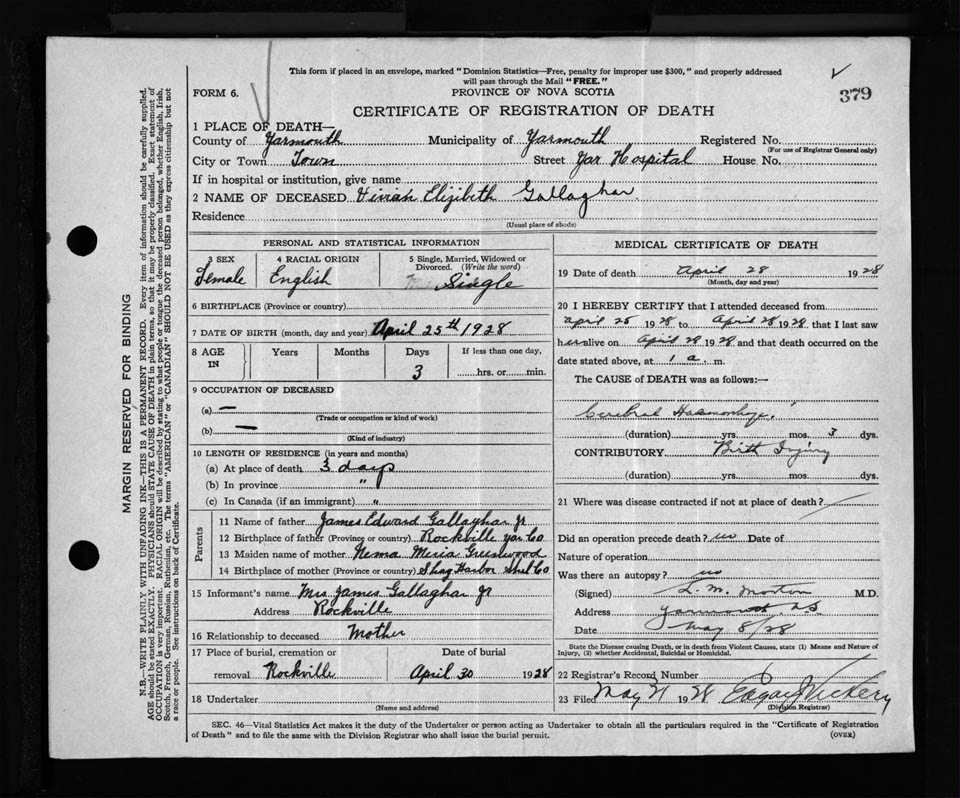 This form if placed in an envelope, marked "Dominion Statistics—Free, penalty for improper use $300," and properly addressed
will pass through the Mail "FREE."
FORM 6.
PROVINCE OF NOVA SCOTIA
379
CERTIFICATE OF REGISTRATION OF DEATH
1 PLACE OF DEATH—
County of Yarmouth Municipality of Yarmouth Registered No.
(For use of Registrar General only)
City or Town Town Street Yar Hospital House No.
If in hospital or institution, give name
2 NAME OF DECEASED Vivian Elizibeth Gallaghar
Residence
(Usual place of abode)
PERSONAL AND STATISTICAL INFORMATION
3 SEX 4 RACIAL ORIGIN 5 Single, Married, Widowed or
Divorced. (Write the word)
Female English Single
6 BIRTHPLACE (Province or country)
7 DATE OF BIRTH (month, day and year) April 25th 1928
8 AGE IN Years Months Days If less than one day,
3 hrs. or min.
9 OCCUPATION OF DECEASED
(a) —
(Trade or occupation or kind of work)
(b) —
(Kind of industry)
10 LENGTH OF RESIDENCE (in years and months)
(a) At place of death 3 days
(b) In province "
(c) In Canada (if an immigrant) "
Parents
11 Name of father James Edward Gallaghar Jr
12 Birthplace of father (Province or country) Rockville Yar Co
13 Maiden name of mother Nema Meria Greenwood
14 Birthplace of mother (Province or country) Shag Harbor Shel Co
15 Informant's name Mrs James Gallaghar Jr
Address Rockville
16 Relationship to deceased Mother
17 Place of burial, cremation or Date of burial
removal Rockville April 30 1928
18 Undertaker
(Name and address)
MEDICAL CERTIFICATE OF DEATH
19 Date of death April 28 1928
(Month, day and year)
20 I HEREBY CERTIFY that I attended deceased from
April 25 1928 to April 28 1928 that I last saw
her alive on April 28 1928 and that death occurred on the
date stated above, at 1 a. m.
The CAUSE of DEATH was as follows:—
Cerebral Haemorhage.
(duration) yrs. mos. 3 dys.
CONTRIBUTORY Birth Injury
(duration) yrs. mos. dys.
21 Where was disease contracted if not at place of death?
Did an operation precede death? no Date of
Nature of operation
Was there an autopsy? no
(Signed) L. M. Morton M.D.
Address Yarmouth N.S
Date May 8/28
State the Disease causing Death, or in death from Violent Causes, state (1) Means and Nature of
Injury, (2) whether Accidental, Suicidal or Homicidal.
22 Registrar's Record Number
23 Filed May 21 1928 Edgar J Vickery
(Division Registrar)
SEC. 46—Vital Statistics Act makes it the duty of the Undertaker or person acting as Undertaker to obtain all the particulars required in the "Certificate of Registration
of Death" and to file the same with the Division Registrar who shall issue the burial permit.
(OVER)
MARGIN RESERVED FOR BINDING
N.B.—WRITE PLAINLY WITH UNFADING INK—THIS IS A PERMANENT RECORD. Every item of information should be carefully supplied.
AGE should be stated EXACTLY. PHYSICIANS should STATE CAUSE OF DEATH in plain terms, so that it may be properly classified. Exact statement of
OCCUPATION is very important. RACIAL ORIGIN will be described by stating to what people or tongue the deceased person belonged, whether English, Irish,
Scotch, French, German, Russian, Ruthenian, etc. The terms "AMERICAN" or "CANADIAN" SHOULD NOT BE USED as they express citizenship but not
a race or people. See instructions on back of Certificate.